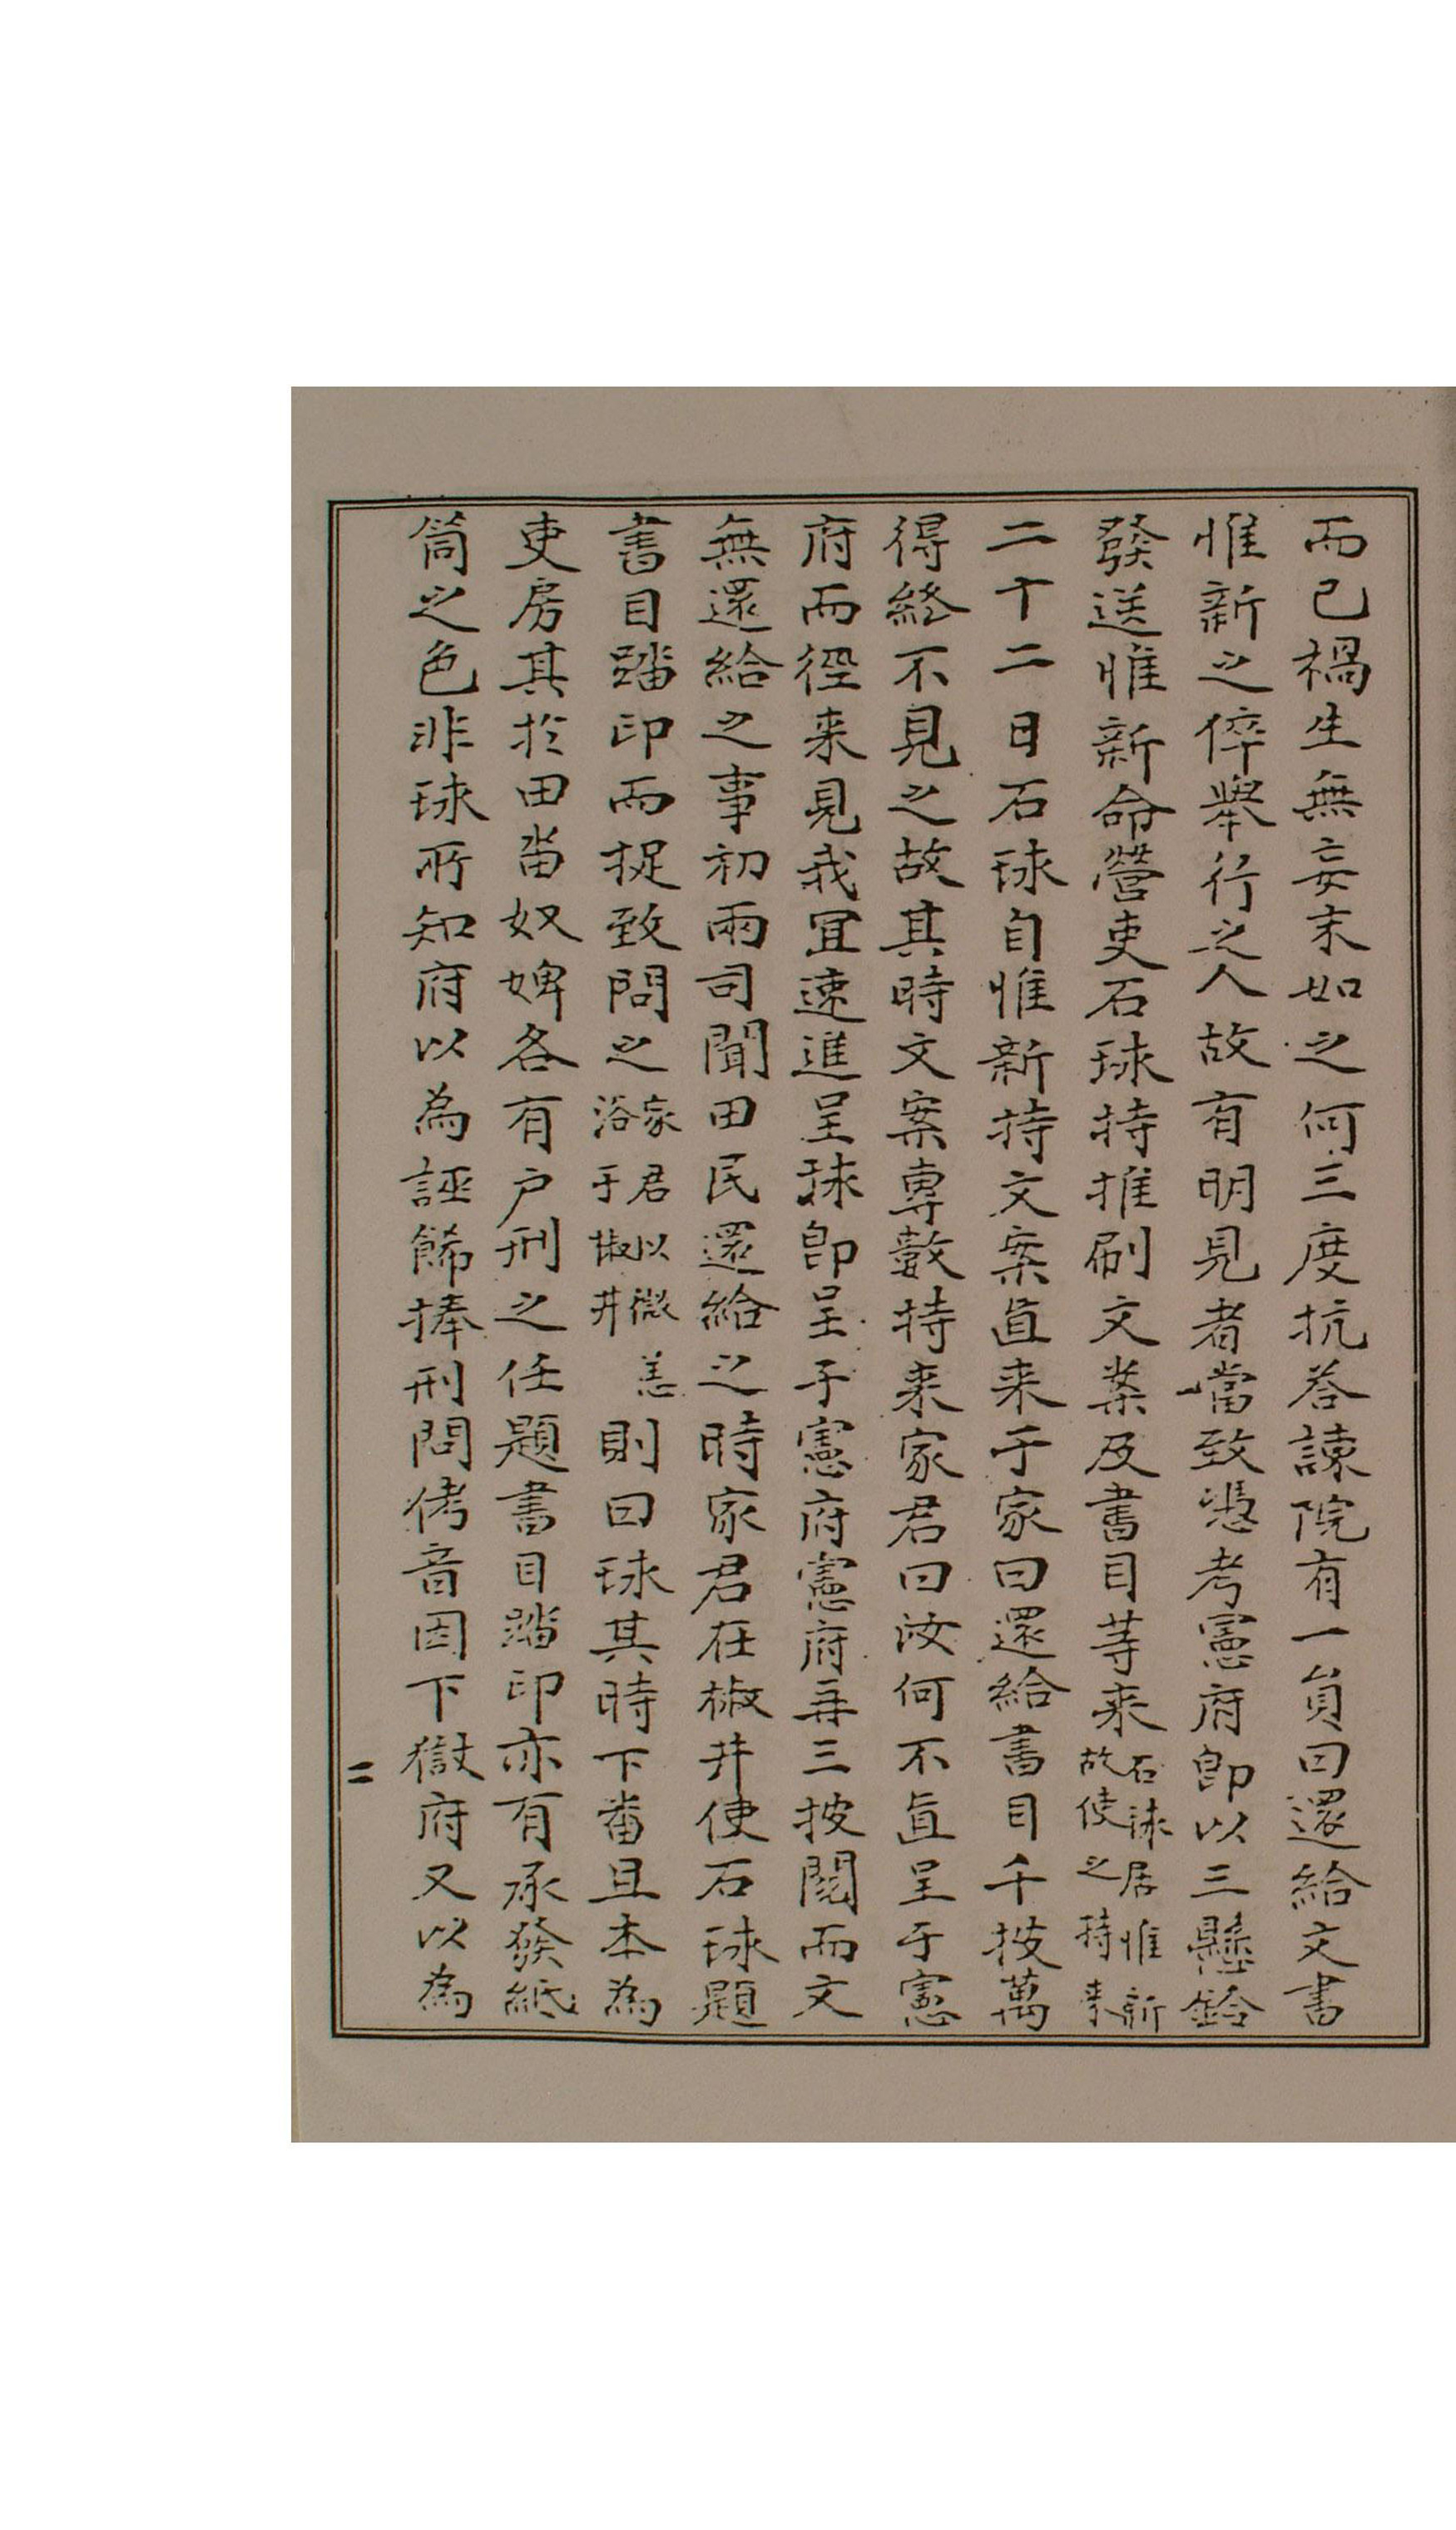 而已禍生無妄末如之何三度抗答諫院有一員曰還給文書
惟新之倅舉行之人故有明見者當致憑考憲府卽以三懸鈴
發送惟新命營吏石球持推刷文案及書目等來石球居惟新故使之持來
二十二日石球自惟新持文案直来于家曰還給書目千披萬
得終不見之故其時文案專數持来家君曰汝何不直呈于憲
府而徑来見我冝速進呈球卽呈于憲府憲府再三披閱而文
無還給之事初兩司聞田民還給之時家君在椒井使石球題
書目踏印而捉致問之家君以微恙浴于椒井則曰球其時下番且本為
吏房其於田畓奴婢各有户刑之任題書目踏印亦有承發紙
筒之色非球所知府以為誣餙捧刑問侤音因下獄府又以為
二